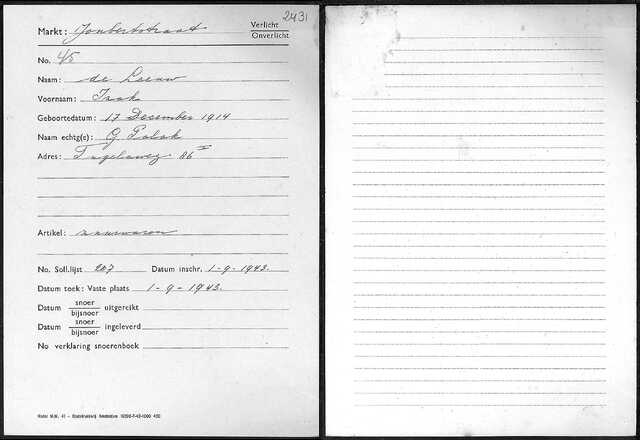 2431
Markt: Joubertstraat
Verlicht
Onverlicht
No. 45
Naam: de Leeuw
Voornaam: Isak
Geboortedatum: 17 December 1914
Naam echtg(e): G Polak
Adres: Tugelaweg 86 II
Artikel:
No. Soll.lijst 207 Datum inschr. 1-9-1943.
Datum toek: Vaste plaats 1-9-1943.
Datum snoer
bijsnoer uitgereikt
Datum snoer
bijsnoer ingeleverd
No verklaring snoerenboek
Model M.W. 41 - Stadsdrukkerij Amsterdam